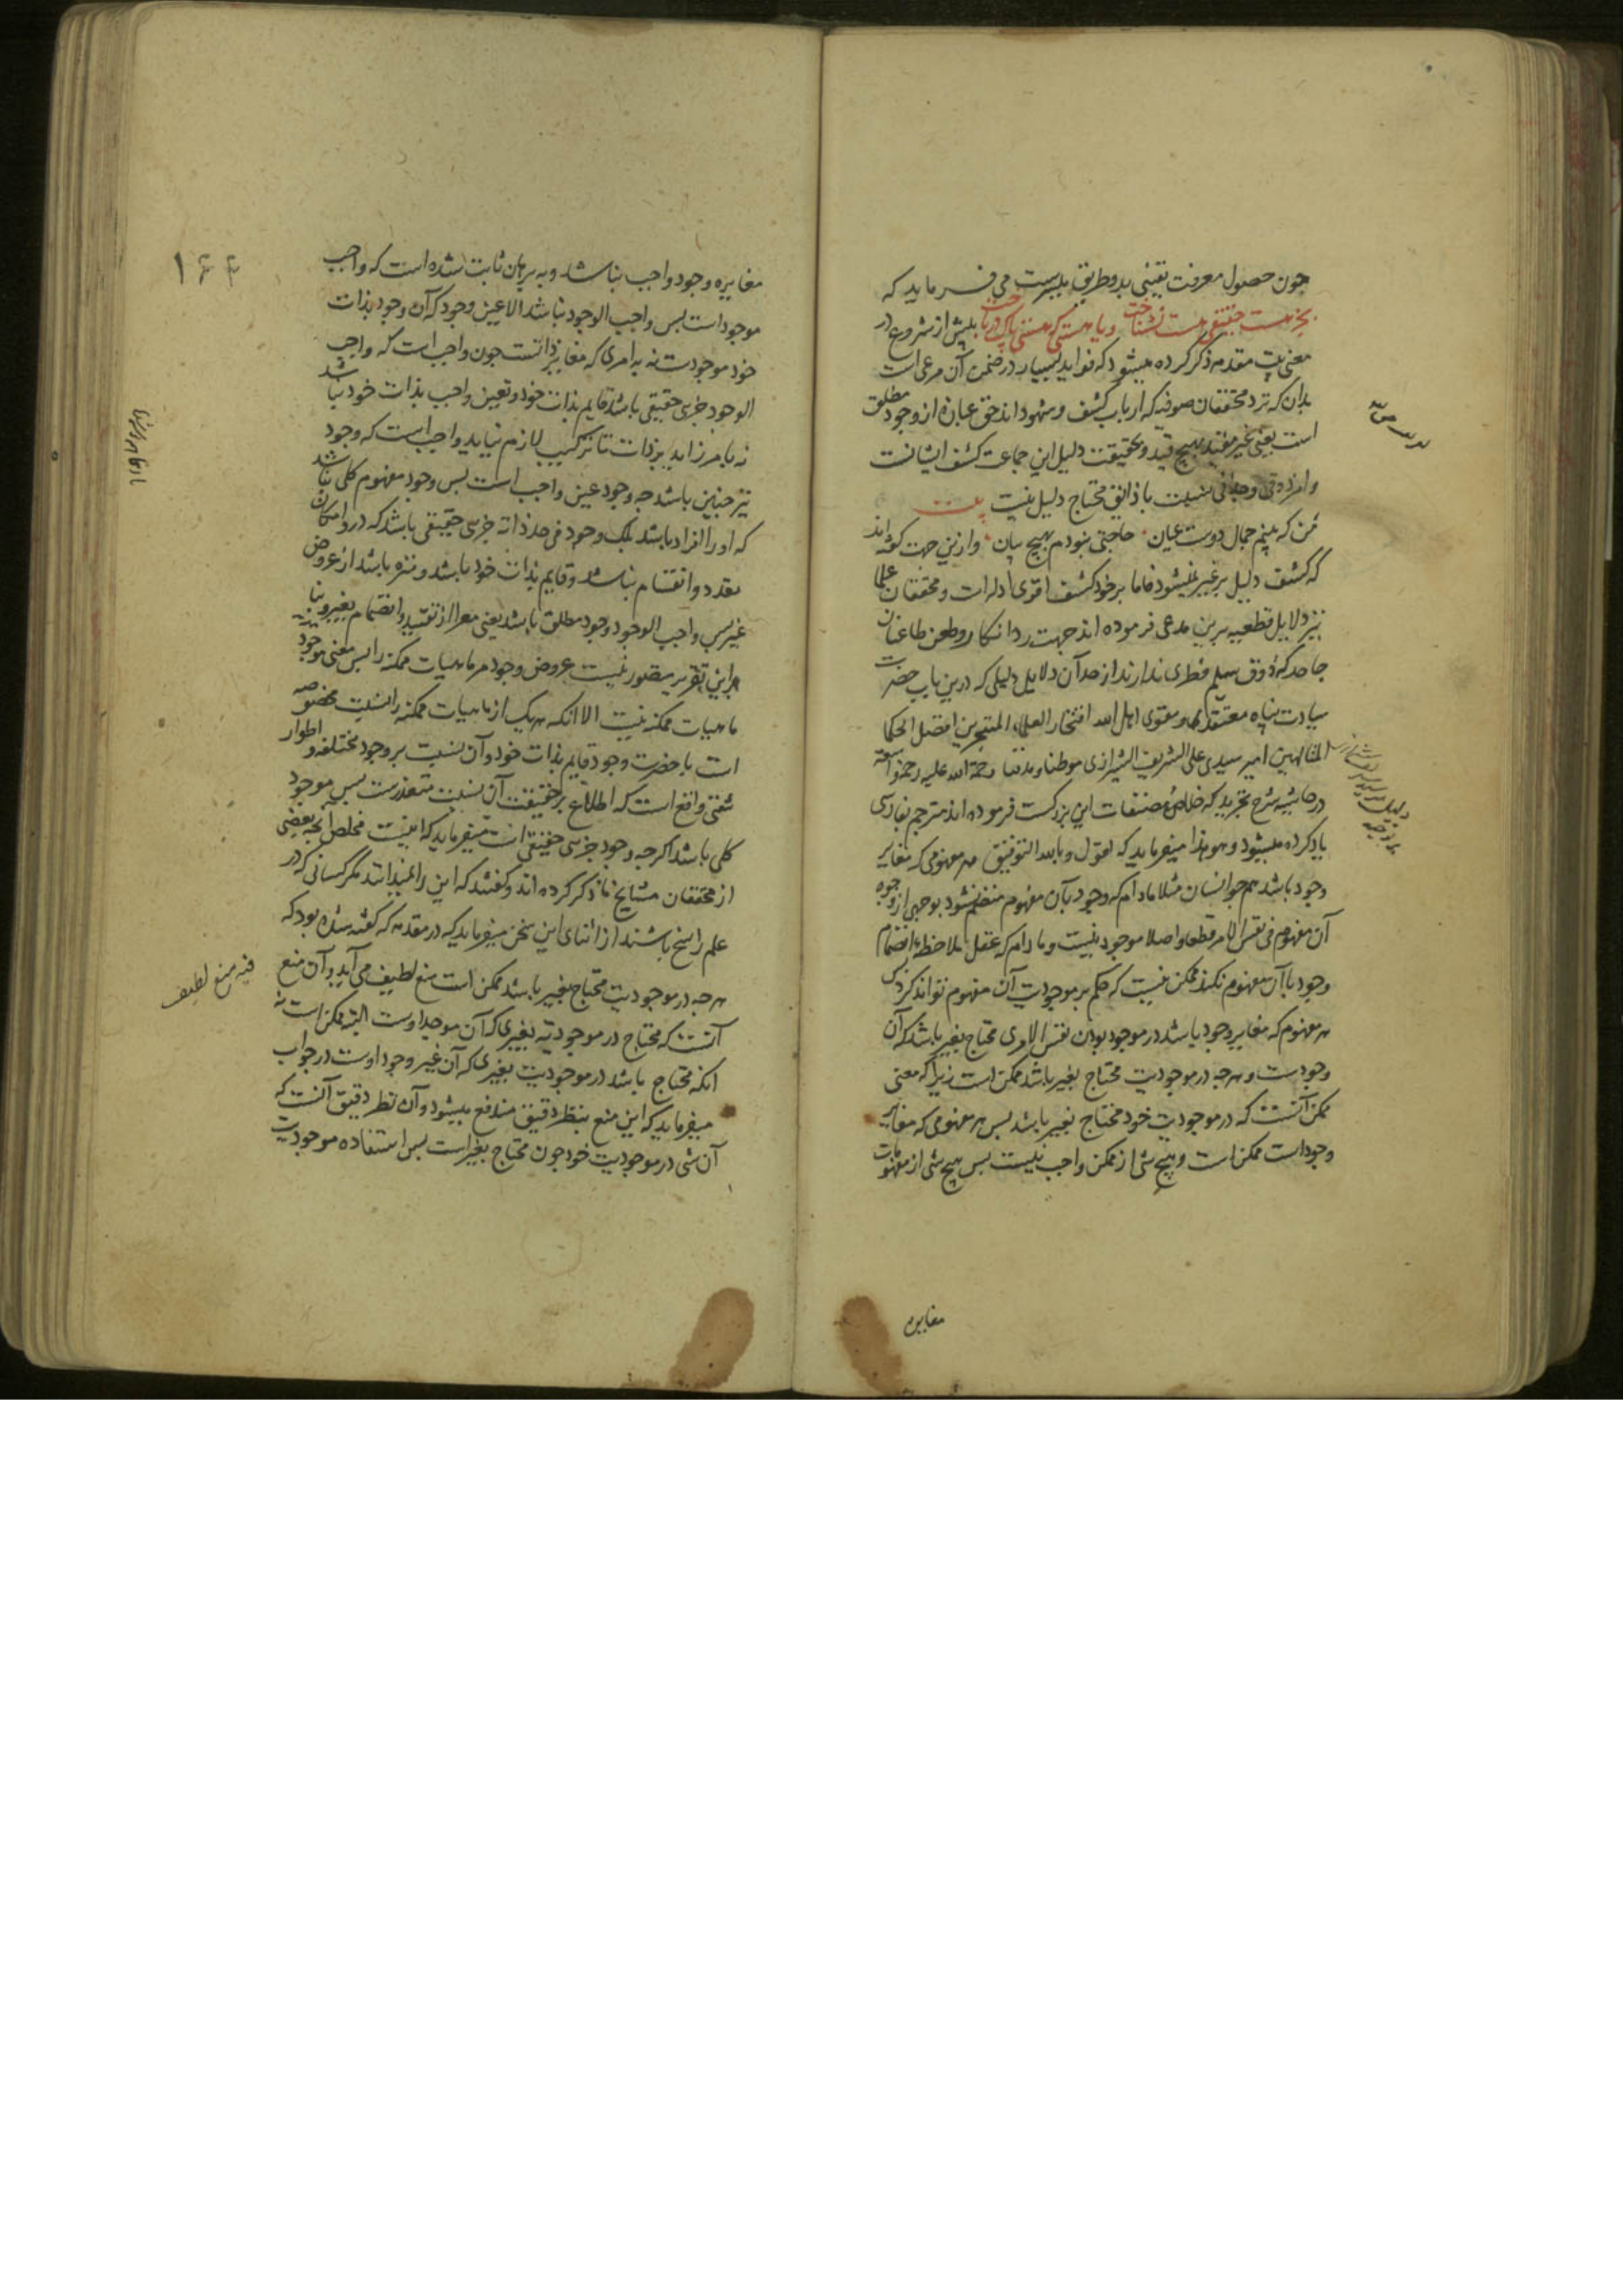 چون حصول معرفت یقینی بدو طریق میسرست می فرماید که
بجز هست حقیقی هست نشناخت ویا هستی که هستی پاک درباخت پیش از شروع در
معنی بیت مقدمه ذکر کرده میشود که فواید بسیار در ضمن آن مرعی است
بدان که نزد محققان صوفیه که ارباب کشف و شهود اند حق عبارة از وجود مطلق
است یعنی غیر مقید بهیچ قید و بحقیقت دلیل این جماعت کشف ایشانست
وامر ذوقی وجدانی نسبت با ذایق محتاج دلیل نیست بیت
من که بینم جمال دوست عیان حاجتی نبودم بهیچ بیان وازین جهت گفته اند
که کشف دلیل بر غیر نمیشود فاما بر خود کشف اقوی ادله است ومحققان علما
نیز دلایل قطعیه برین مدعی فرموده اند جهت رد انکار وطعن طاعنان
جاحد که ذوق سلیم فطری ندارند از جمله آن دلایل دلیلی که درین باب حضرت
سیادت پناه معتقد ومقوی اهل الله افتخار العلماء المتبحرین افضل الحکما
المتالهین امیر سیدی علی الشریف الشیرازی موطنا ومدفنا رحمة الله علیه رحمة واسعة
در حاشیه شرح تجرید که خلاصه مصنفات این بزرگست فرموده اند مترجم بفارسی
یاد کرده میشود وهو هذا میفرماید که نقول وبالله التوفیق هر مفهومی که مغایر
وجود باشد همچو انسان مثلا مادام که وجود بآن مفهوم منضم نشود بوجهی از وجوه
آن مفهوم فی نفس الامر قطعا واصلا موجود نیست ومادام که عقل ملاحظه انضمام
وجود باآن مفهوم نکند ممکن نیست که حکم بر موجودیت آن مفهوم تواند کرد پس
هر مفهوم که مغایر وجود باشد در موجود بودن نفس الامری محتاج بغیر باشد که آن
وجودست وهرچه در موجودیت محتاج بغیر باشد ممکن است زیرا که معنی
ممکن آنست که در موجودیت خود محتاج بغیر باشد پس هر مفهومی که مغایر
وجود است ممکن است وهیچ شی از ممکن واجب نیست پس هیچ شی از مفهومات
مغایره
۱۴۴
مغایره وجود واجب نباشد وبه برهان ثابت شده است که واجب
موجود است پس واجب الوجود نباشد الا عین وجود که آن وجود بذات
خود موجودست نه به امری که مغایر ذاتست چون واجب است که واجب
الوجود جزی حقیقی باشد قایم بذات خود وتعین واجب بذات خود باشد
نه بامر زاید بر ذات تا ترکیب لازم نیاید واجب است که وجود
نیز چنین باشد چه وجود عین واجب است پس وجود مفهوم کلی نباشد
که او را افراد باشد بلک وجود فی حد ذاته جزی حقیقی باشد که درو امکان
تعدد وانقسام نباشد وقایم بذات خود باشد ومنزه باشد از عروض
غیر پس واجب الوجود وجود مطلق باشد یعنی معرا از تقیید وانضمام بغیر وبنا
براین تقریر متصور نیست عروض وجود مر ماهیات ممکنه را پس معنی موجود
ماهیات ممکنه نیست الا آنکه هریک از ماهیات ممکنه را نسبت مخصوصه
است با حضرت وجود قایم بذات خود وآن نسبت بر وجوه مختلفه واطوار
شتی واقع است که اطلاع بر حقیقت آن نسبت متعذرست پس موجود
کلی باشد اگرچه وجود جزی حقیقی است میفرماید که اینست مخلص آنچه بعضی
از محققان مشایخ ما ذکر کرده اند وگفتند که این را نمیدانند مگر کسانی که در
علم راسخ باشند از اثنای این سخن میفرماید که در مقدمه که گفته شده بود که
هرچه در موجودیت محتاج بغیر باشد ممکن است منع لطیف می آید وآن منع
فیه منع لطیف
آنست که محتاج در موجودیت بغیری که آن موجد اوست البته ممکن است نه
آنکه محتاج باشد در موجودیت بغیری که آن غیر وجود اوست در جواب
میفرماید که این منع بنظر دقیق مندفع میشود وآن نظر دقیق آنست که
آن شی در موجودیت خود چون محتاج بغیر است پس استفاده موجودیت